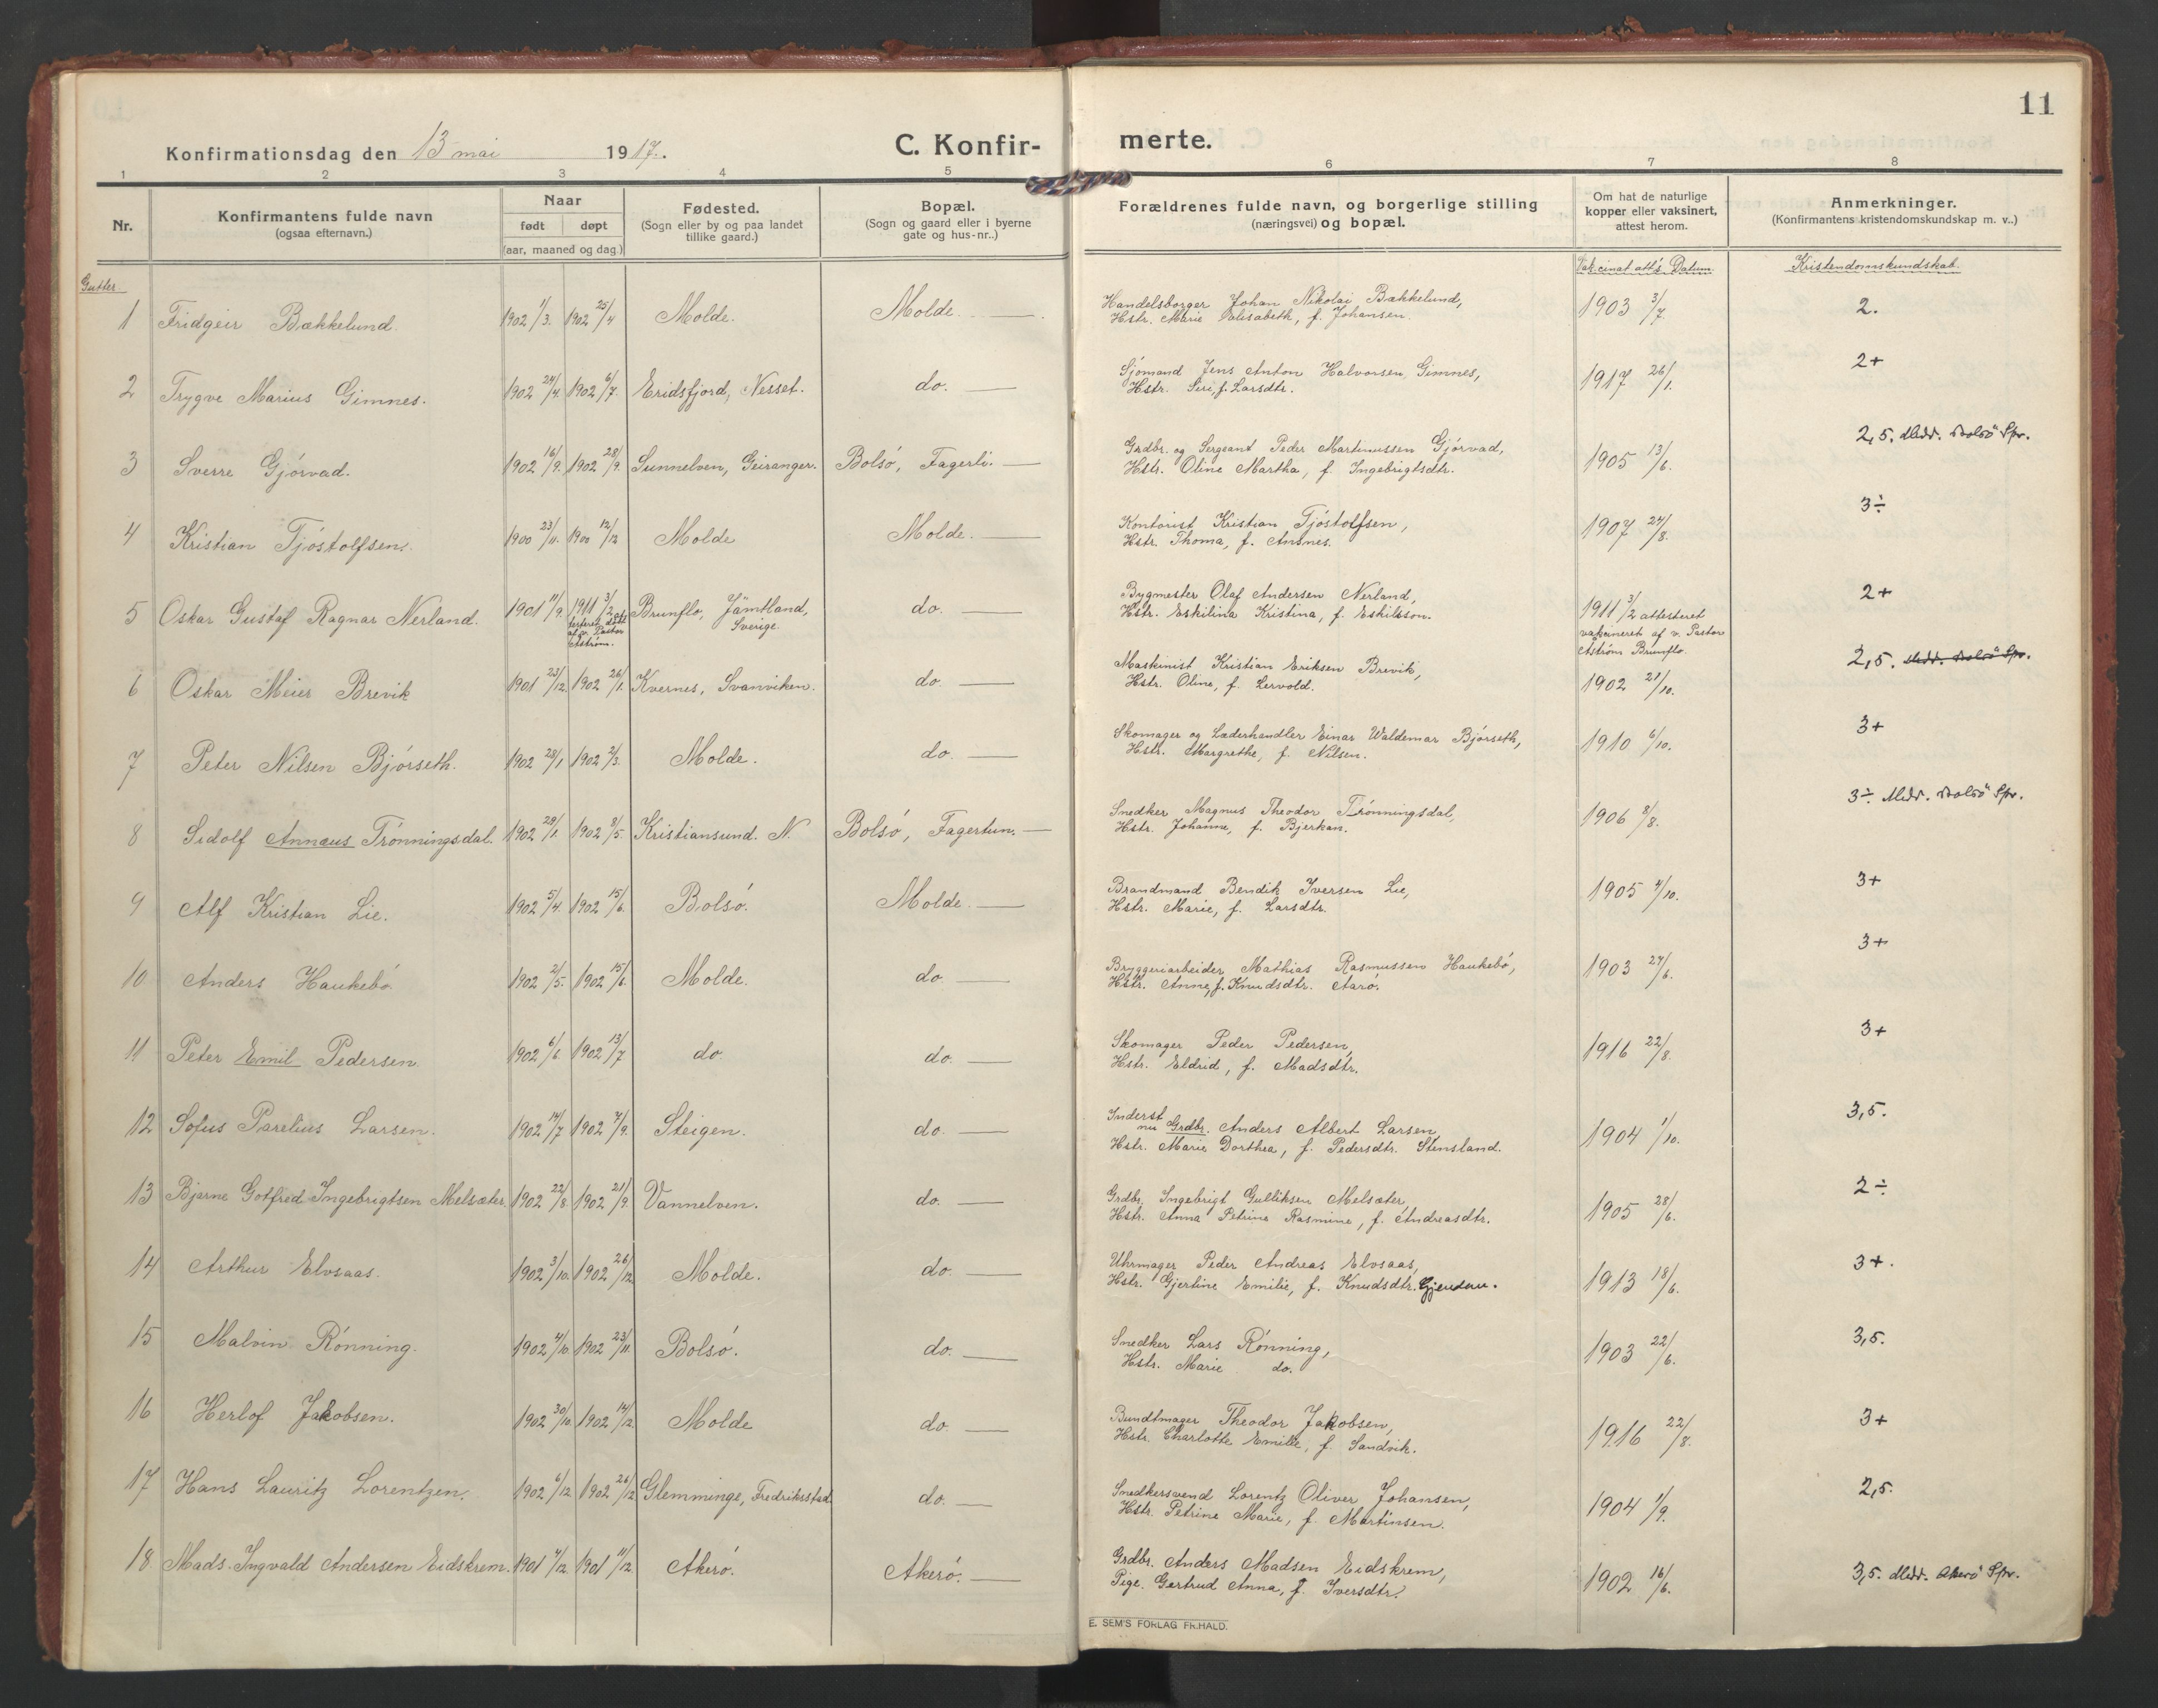 11
Konfirmationsdag den 13 mai 1917.
C. Konfirmerte.
1 2 3 4 5 6 7 8
Nr. Konfirmantens fulde navn (ogsaa efternavn.) Naar født døpt (aar, maaned og dag.) Fødested. (Sogn eller by og paa landet tillike gaard.) Bopæl. (Sogn og gaard eller i byerne gate og hus-nr..) Forældrenes fulde navn, og borgerlige stilling (næringsvei) og bopæl. Om hat de naturlige kopper eller vaksinert, attest herom. Anmerkninger. (Konfirmantens kristendomskundskap m. v..)
Gutter Vakcinat.att's Datum. Kristendomskundskab.
1 Fridgeir Bækkelund. 1902 1/3. 1902 25/4 Molde. Molde. — Handelsborger Johan Nikolai Bækkelund, 1903 3/7. 2.
Hstr. Marie Elisabeth, f. Johansen.
2 Trygve Marius Gimnes. 1902 24/4. 1902 6/7. Eridsfjord, Nesset. do. — Sjömand Jens Anton Halvorsen Gimnes, 1917 26/1. 2+
Hstr. Siri, f. Larsdtr.
3 Sverre Gjörvad. 1902 16/9. 1902 28/9. Sunnelven, Geiranger. Bolsö, Fagerli. — Grdbr. og Sergeant Peder Martinussen Gjörvad, 1905 13/6. 2,5. Medd. Bolsö Spr.
Hstr. Oline Martha, f. Ingebrigtsdtr.
4 Kristian Tjöstolfsen. 1900 23/11. 1900 12/12 Molde Molde. — Kontorist Kristian Tjöstolfsen, 1907 24/8. 3÷
Hstr. Thoma, f. Ansnes.
5 Oskar Gustaf Ragnar Nerland. 1901 11/9. 1911 3/2 Brunflo, Jämtland, Sverige. do. — Bygmester Olaf Andersen Nerland, 1911 3/2 attesteret vakcineret af v. Pastor Åström Brunflo. 2+
Hstr. Eskilina Kristina, f. Eskilsson.
6 Oskar Meier Brevik 1901 23/12. 1902 26/1. Kvernes, Svanviken. do. — Maskinist Kristian Eriksen Brevik, 1902 21/10. 2,5. Medd. Bolsö Spr.
Hstr. Oline, f. Lervold.
7 Peter Nilsen Björseth. 1902 28/1 1902 2/3. Molde. do. — Skomager og Læderhandler Einar Waldemar Björseth, 1910 6/10. 3+
Hstr. Margrethe, f. Nilsen.
8 Sidolf Annæus Trönningsdal. 1902 29/1. 1902 8/5. Kristiansund. N. Bolsö, Fagertun. — Snedker Magnus Theodor Trönningsdal, 1906 8/8. 3÷ Medd. Bolsö Spr.
Hstr. Johanne, f. Bjerkan.
9 Alf Kristian Lie. 1902 5/4. 1902 15/6. Bolsö. Molde. — Brandmand Bendik Iversen Lie, 1905 4/10. 3+
Hstr. Marie, f. Larsdtr.
10 Anders Haukebö 1902 2/5. 1902 15/6. Molde. do. — Bryggeriarbeider Mathias Rasmussen Haukebö, 1903 27/6. 3+
Hstr. Anne, f. Knudsdtr. Aarö.
11 Peter Emil Pedersen 1902 6/6 1902 13/7 do. do. — Skomager Peder Pedersen, 1916 22/8. 3+
Hstr. Eldrid, f. Madsdtr.
12 Sofus Parelius Larsen. 1902 14/7 1902 7/9. Steigen. do. — Inderst nu Grdbr. Anders Albert Larsen, 1904 1/10. 3,5.
Hstr. Marie Dorthea, f. Pedersdtr. Stensland.
13 Bjarne Gotfred Ingebrigtsen Melsæter. 1902 22/8. 1902 21/9. Vannelven. do. — Grdbr. Ingebrigt Gulliksen Melsæter, 1905 28/6. 2÷
Hstr. Anna Petrine Rasmine, f. Andreasdtr.
14 Arthur Elvsaas. 1902 3/10. 1902 26/12. Molde. do. — Uhrmager Peder Andreas Elvsaas, 1913 18/6. 3+.
Hstr. Gjertine Emilie, f. Knudsdtr. Gjendem.
15 Malvin Rönning. 1902 4/10. 1902 23/11. Bolsö. do. — Snedker Lars Rönning, 1903 22/6. 3,5.
Hstr. Marie do.
16 Herlof Jakobsen. 1902 30/10. 1902 14/12. Molde do. — Bundtmager Theodor Jakobsen, 1916 22/8. 3+
Hstr. Charlotte Emilie, f. Sandvik.
17 Hans Lauritz Lorentzen. 1902 6/12. 1902 26/12 Glemminge, Fredriksstad. do. — Snedkersvend Lorentz Oliver Johansen, 1904 1/9. 2,5.
Hstr. Petrine Marie, f. Martinsen.
18 Mads Ingvald Andersen Eidskrem. 1901 4/12. 1901 11/12. Akerö. Akerö. — Grdbr. Anders Madsen Eidskrem, 1902 16/6. 3,5. Medd. Akerö Spr.
Pige Gertrud Anna, f. Iversdtr.
E. SEM'S FORLAG FR.HALD.